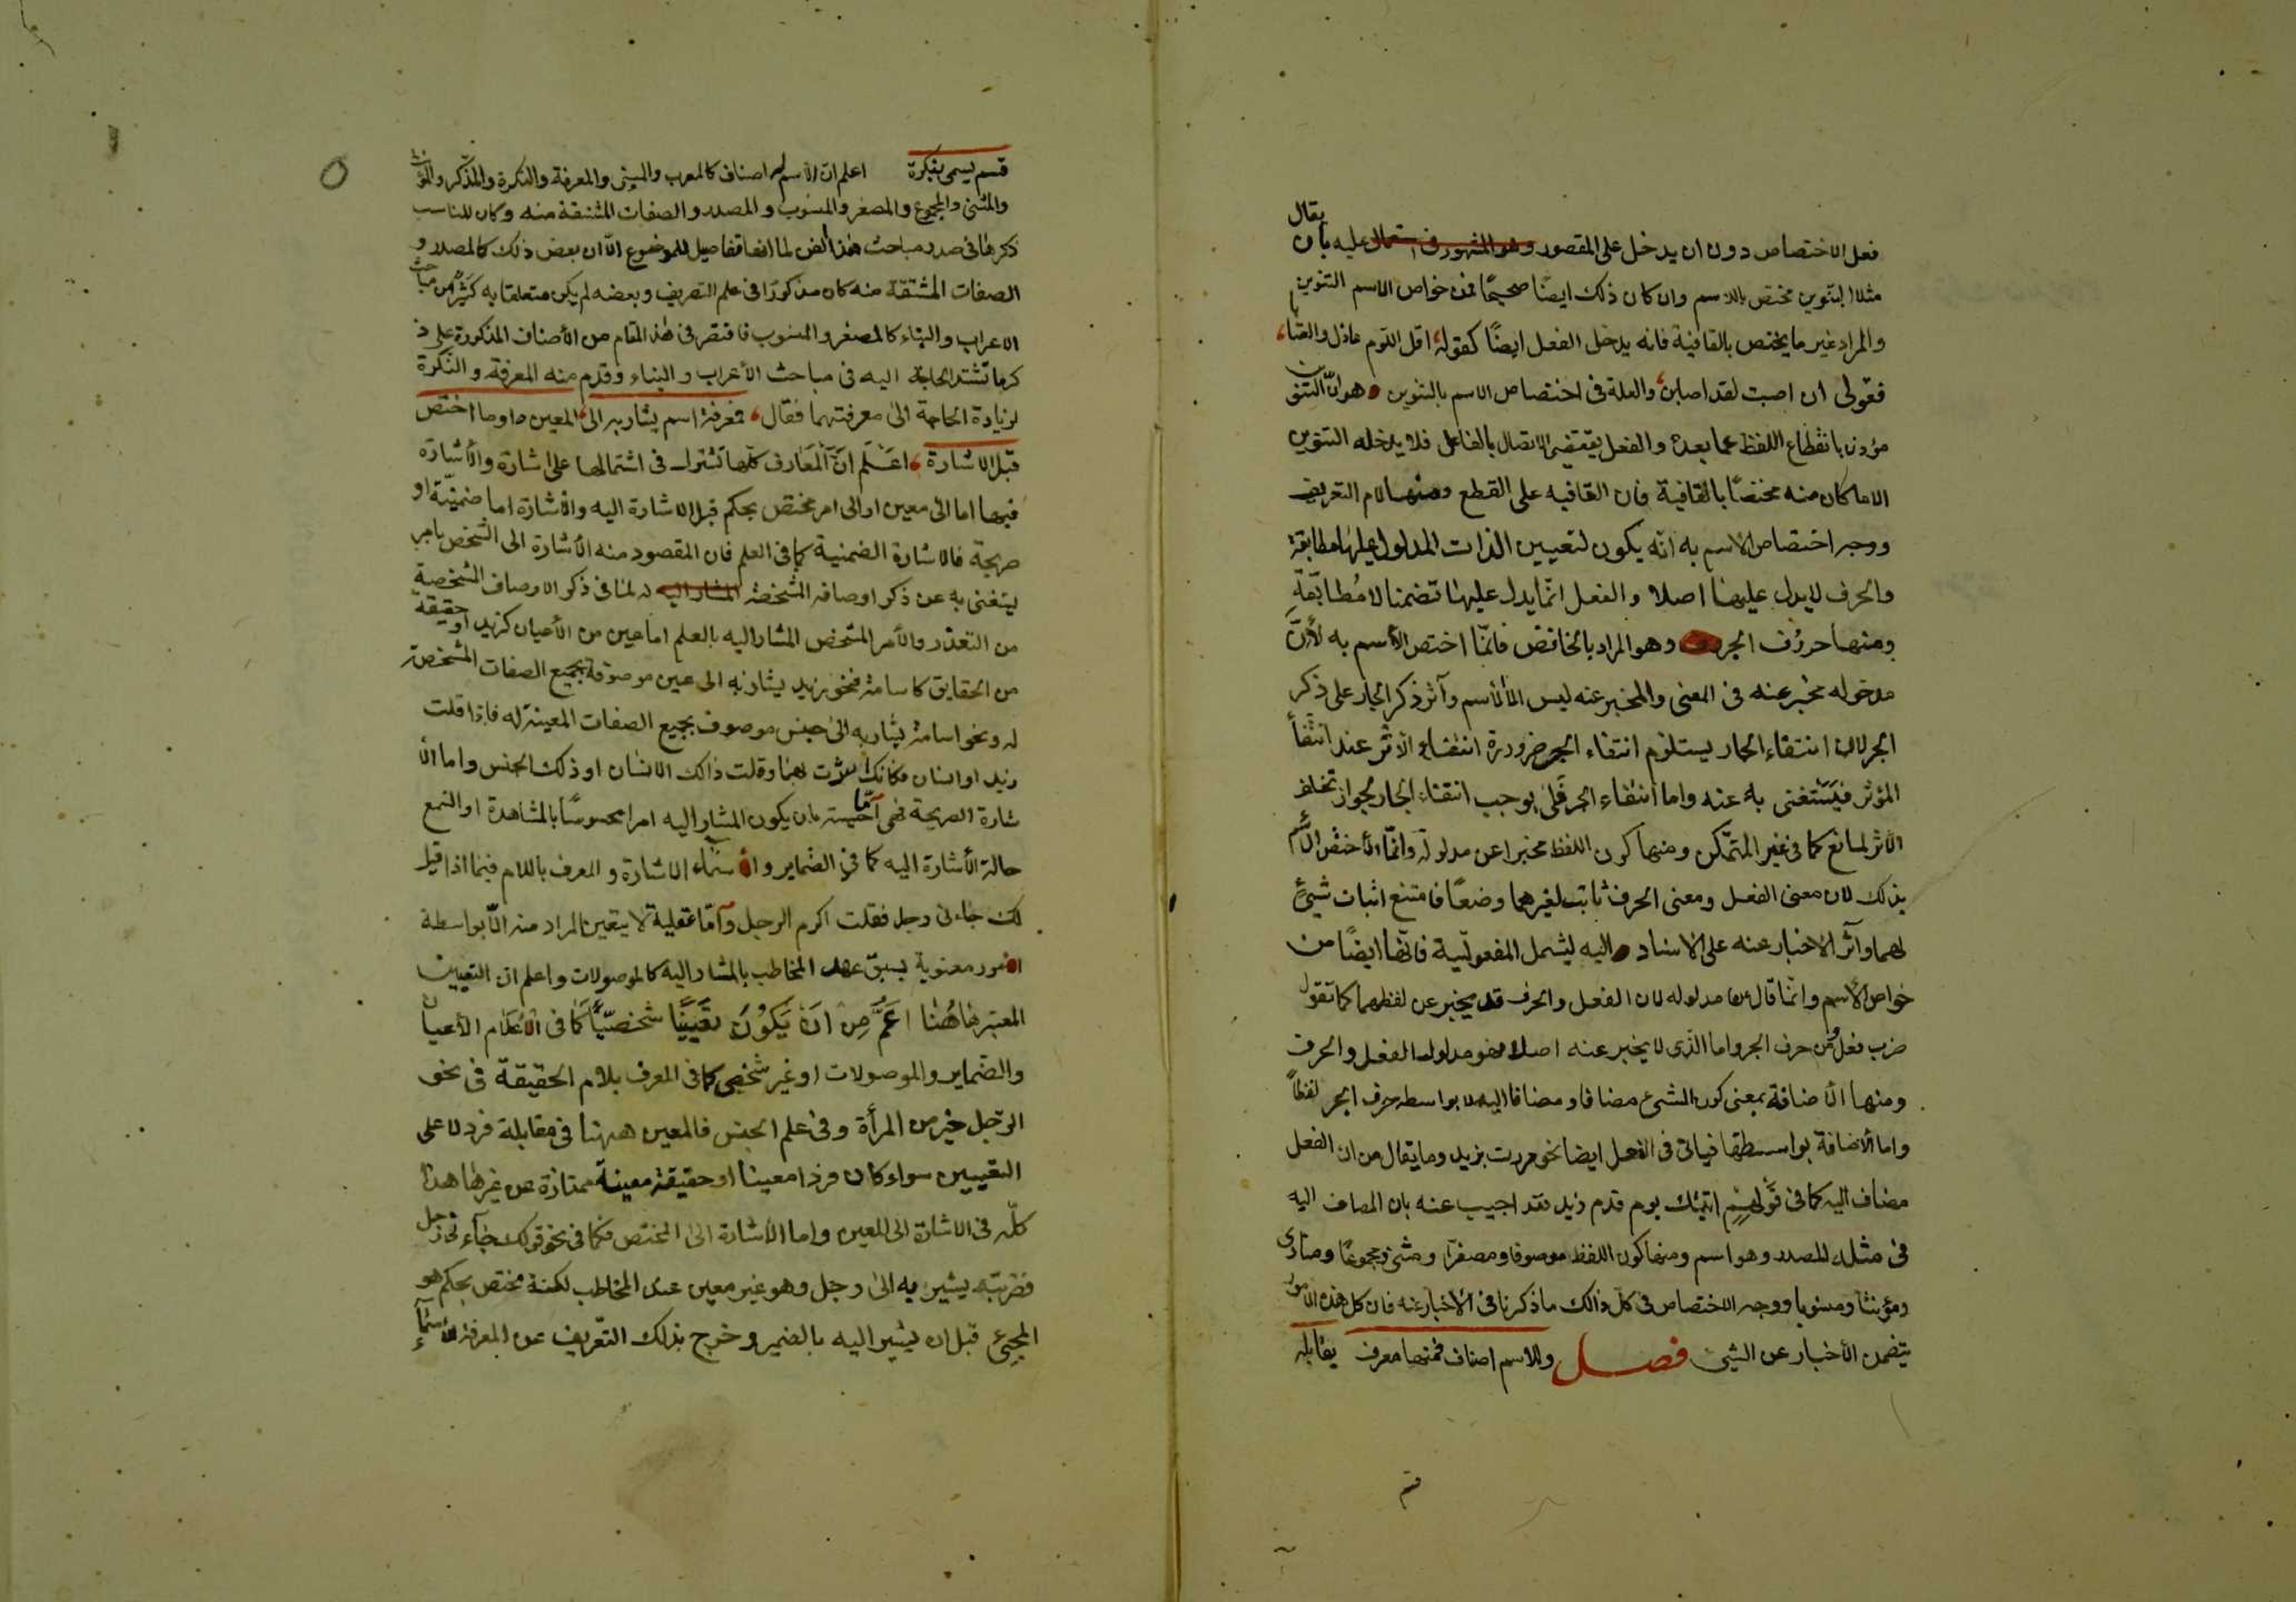 يقال
فعل الاختصاص دون ان يدخل على المقصور وهو المشهور فى استعمال عليه بان
مثلا التنوين مختص بالاسم وان كان ذلك ايضًا صحيحًا فمن خواص الاسم التنوين
والمراد غير ما يختص بالقافية فانه يدخل الفعل ايضًا كقوله، اقل اللوم عاذل والعتابا،
فقولى ان اصبت لقد اصابن، والعلة فى اختصاص الاسم بالتنوين هو انّ التنوين
مؤذن بانقطاع اللفظ عما بعده والفعل يقتضى الاتصال بالفاعل فلا يدخله التنوين
الا ما كان منه مختصًا بالقافية فان القافيه على القطع ومنها لام التعريف
ووجه اختصاص الاسم به انّه يكون لتعيين الذات المدلول عليها مطابقة
والحرف لا يدل عليها اصلا والفعل انّما يدل عليها تضمنا لا مُطابَقةِ
ومنها حروف الجر وهو المراد بالخافض فانّما اختص الأسم به لأنَّ
مدخوله مخبر عنه فى المعنى والمخبر عنه ليس الا الأسم وآثر ذكر الجار على ذكر
الجر لان انتفاء الجار يستلزم انتفاء الجر ضرورة انتفاء الاثر عند انتفأ
المؤثر فيَستغنى به عنه واما انتفاء الجر فلا يوجب انتفاء الجار لجواز تخلف
الأثر لمانع كما فى غير المتمكن ومنها كون اللفظ مخبرا عن مدلوله وانّما اختص الأسم
بذلك لان معنى الفعل ومعنى الحرف ثابت لغيرهما وضعًا فامتنع اثبات شيئ
لهما وآثر الاخبار عنه على الاسناد اليه ليشمل المفعوليّة فانّها ايضًا من
خواص الأسم وانّما قال عن مدلوله لان الفعل والحرف قد يخبر عن لفظهما كما تقول
ضرب فعل ومن حرف الجر واما الّذى لا يخبر عنه اصلا فهو مدلول الفعل والحرف
ومنها الأضافة بمعنى كون الشئ مضافا ومضافا اليه لا بواسطه حرف الجر لفظاً
واما الأضافة بواسطتها فياتى فى الفعل ايضا نحو مررت بزيد وما يقال من ان الفعل
مضاف اليه كما فى قَولِهِمِ اتيتك يوم قدم زيد فقد اجيب عنه بان المضاف اليه
فى مثله المصدر وهو اسم ومنها كون اللفظ موصوفا ومصغرًا ومثنى ومجموعًا ومنادى
ومؤنثا ومنسوبا ووجه الاختصاص فى كل ذالك ما ذكرنا فى الاخبار عنه فان كل هذه الامور
يتضمن الأخبار عن الشئ فصل وللاسم اصناف فمنها معرف يقابله
قسم
قسم يسمى بنكرة اعلم ان الاسم له اصناف كالمعرب والمبنى والمعرفة والنكرة والمذكّر والمؤنث
والمثنى والمجموع والمصغر والمنسوب والمصدر والصفات المشتقة منه وكان المناسب
ذكرها فى صدر مباحث هذا الفن لما انها تفاصيل للموضوع الّا ان بعض ذلك كالمصدر و
الصفات المشتقة منه كان مذكورًا فى علم التصريف وبعضه لم يكن متعلقا به كثير من مباحث
الاعراب والبناء كالمصغر والمنسوب فاقتصر فى هذا المقام من الأصناف المذكورة على ذ
كر ما تشتد الحاجة اليه فى مباحث الأعراب والبناء وقدم منه المعرفة والنّكرة
لزيادة الحاجة الى معرفتهما فقال، فمعرفة اسم يشار به الى المعين او ما اختص
قبل الاشارة، اعلَم انَّ المَعَارف كلّها تشترك فى اشتمالها على اشارة والأشارة
فيها اما الى معين او الى امر مختص بحكم قبل الاشارة اليه والاشارة اما ضمنيّة او
صريحة فالاشارة الضمنية كما فى العلم فان المقصود منه الأشارة الى الشخص باسم
يستغنى به عن ذكر اوصافه المشخصة المشار اليه له لما فى ذكر الاوصاف المشخصة
من التعذر والأمر المشخص المشار اليه بالعلم اما عين من الأعيان كزيد او حقيقة
من الحقايق كاسامة فنحو زيد يشار به الى عين موصوفة بجميع الصفات المشخصة
له ونحو اسامة يشار به الى جنس موصوف بجميع الصفات المعينة له فاذا قلت
زيد او اسامة فكانك اشرت بهما وقلت ذاك الانسان او ذلك الجنس واما الأ
شارة الصريحة فهى امّا حسّية بان يكون المشار اليه امرا محسوسًا بالمشاهدة او السمع
حالة الأشارة اليه كما فى الضماير واسماء الاشارة والمعرف باللام فيما اذا قيل
لك جاءنى رجل فقلت اكرم الرجل وامّا عقلية لا يتعين المراد منه الّا بواسطة
امور معنوية يسبق عهد المخاطب بالمشار اليه كالموصولات واعلم ان التعيين
المعتبر هاهُنا اعَمَّ مِنْ انَ يَكوُنَ تعَيينًا شخصيّاً كما فى الاَعَلام الأعيان
والضماير والموصولات او غير شخصى كما فى المعرف بلام الحقيقة فى نحو
الرّجل خير من المرأة وفى علم الجنس فالمعين ههنا فى مقابلة فرد لا على
التعيين سواء كان فردا معينا او حقيقة معينة ممتازة عن غيرها هذا
كلّه فى الاشارة الى المعين واما الأشارة الى المختص فكما فى نحو قولك جاءنى رجل
فضربته يشير به الى رجل وهو غير معين عند المخاطب لكنه مختص بحكم هو
المجئ قبل ان يشير اليه بالضمير وخرج بذلك التّعريف عن المعرفة الأسمآء